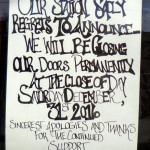 OUR STATION SADLY
REGRETS TO ANNOUNCE...
WE WILL BE CLOSING
OUR DOORS PERMANENTLY
AT THE CLOSE OF DAY
SATURDAY DECEMBER,
31st 2016
SINCEREST APOLOGIES AND THANKS
FOR THE CONTINUED
SUPPORT